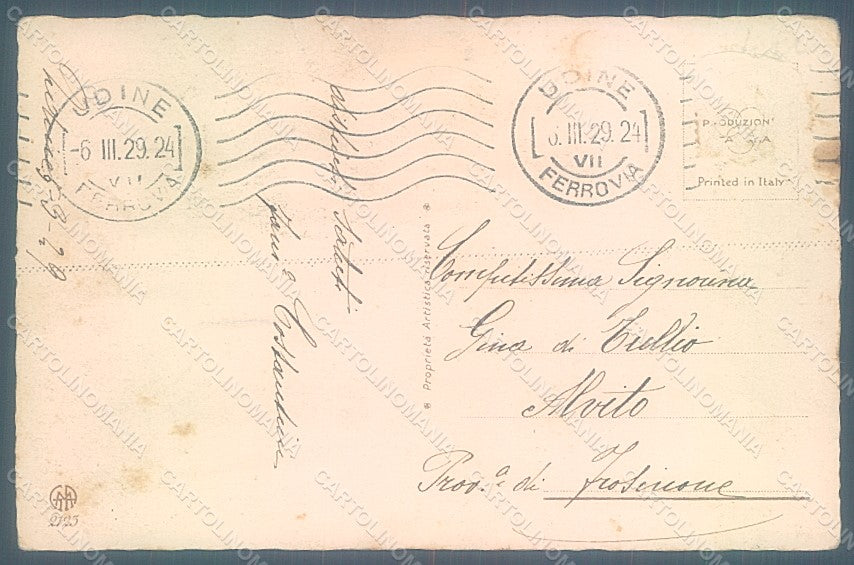 UDINE
-6 III.29.24
VII
FERROVIA
UDINE
6 III.29.24
VII
FERROVIA
PRODUZIONE
Printed in Italy
Saluti
Proprietà Artistica riservata
Compitissima Signorina
Gina di Tullio
Alvito
Prov.ª di Frosinone
2125
CARTOLINOMANIA